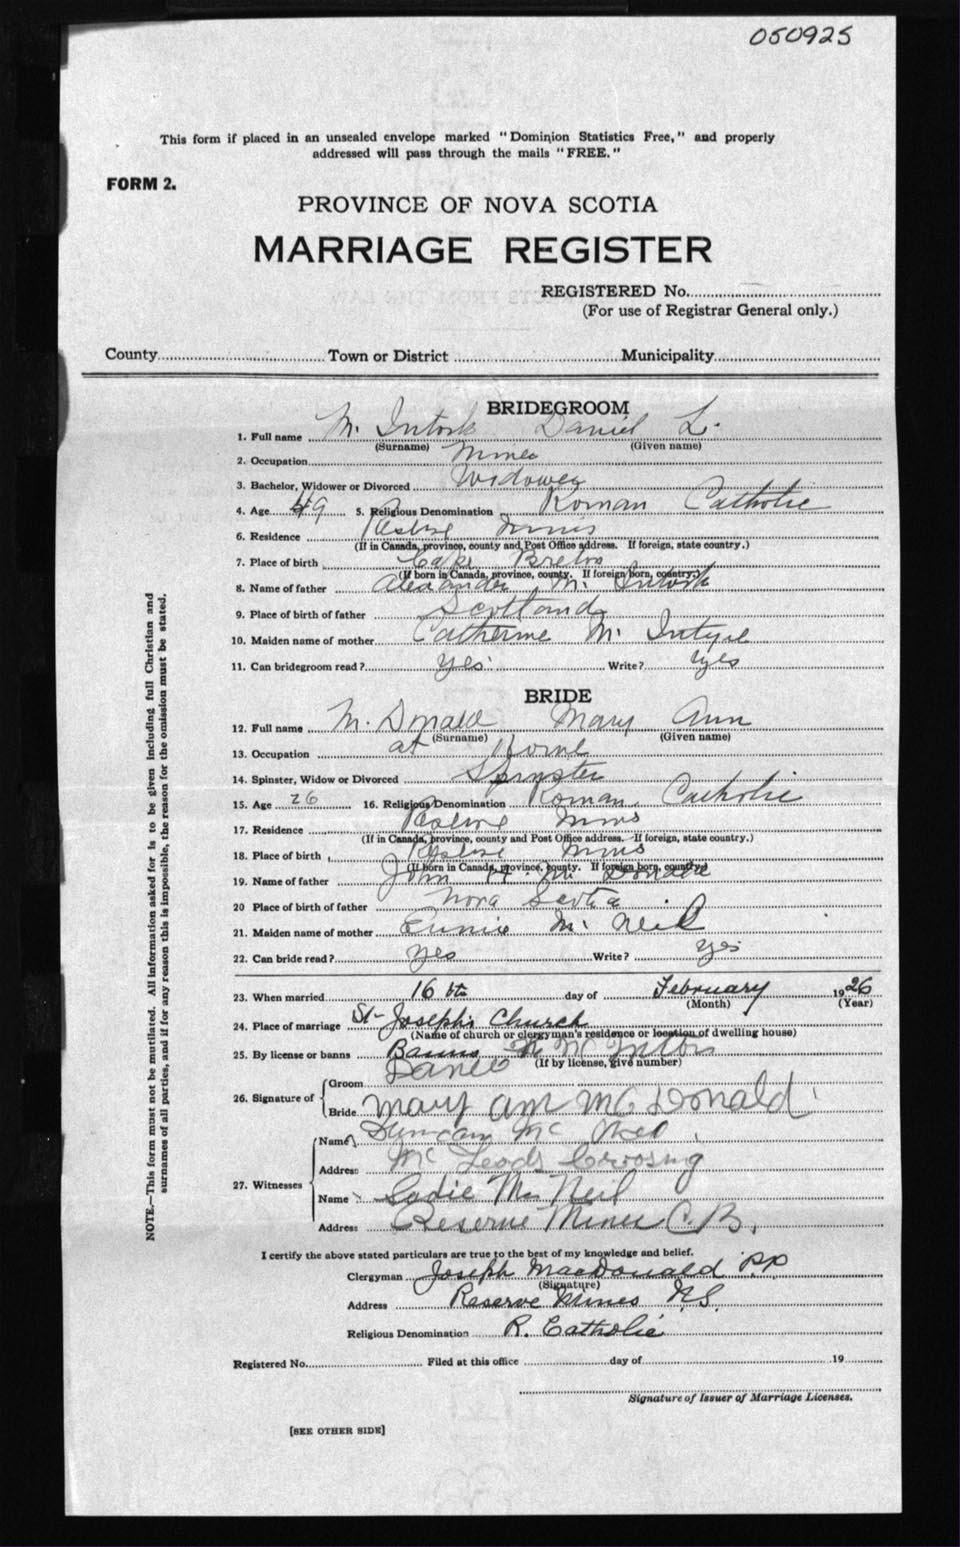 050925
This form if placed in an unsealed envelope marked "Dominion Statistics Free," and properly
addressed will pass through the mails "FREE."
FORM 2.
PROVINCE OF NOVA SCOTIA
MARRIAGE REGISTER
REGISTERED No.
(For use of Registrar General only.)
County Town or District Municipality
BRIDEGROOM
1. Full name Mc Intosh Daniel L.
(Surname) (Given name)
2. Occupation Miner
3. Bachelor, Widower or Divorced Widower
4. Age 49 5. Religious Denomination Roman Catholic
6. Residence Reserve Mines
(If in Canada, province, county and Post Office address. If foreign, state country.)
7. Place of birth Cape Breton
(If born in Canada, province, county. If foreign born, country.)
8. Name of father Alexander Mc Intosh
9. Place of birth of father Scotland
10. Maiden name of mother Catherine Mc Intyre
11. Can bridegroom read? yes Write? yes
BRIDE
12. Full name Mc Donald Mary Ann
(Surname) (Given name)
13. Occupation at Home
14. Spinster, Widow or Divorced Spinster
15. Age 26 16. Religious Denomination Roman Catholic
17. Residence Reserve Mines
(If in Canada, province, county and Post Office address. If foreign, state country.)
18. Place of birth Reserve Mines
(If born in Canada, province, county. If foreign born, country)
19. Name of father John H. Mc Donald
20 Place of birth of father Nova Scotia
21. Maiden name of mother Eunice Mc Neil
22. Can bride read? yes Write? yes
23. When married 16th day of February 1926
(Month) (Year)
24. Place of marriage St- Joseph's Church
(Name of church or clergyman's residence or location of dwelling house)
25. By license or banns Banns
(If by license, give number)
26. Signature of Groom Daniel Mc Intosh
Bride Mary Ann McDonald
27. Witnesses Name Duncan Mc
Address Mc Leods Crossing
Name Sadie Mc Neil
Address Reserve Mines C.B.
I certify the above stated particulars are true to the best of my knowledge and belief.
Clergyman Joseph MacDonald P.P.
(Signature)
Address Reserve Mines N.S.
Religious Denomination R. Catholic
Registered No. Filed at this office day of 19
Signature of Issuer of Marriage Licenses.
[SEE OTHER SIDE]
NOTE.—This form must not be mutilated. All information asked for is to be given including full Christian and
surnames of all parties, and if for any reason this is impossible, the reason for the omission must be stated.